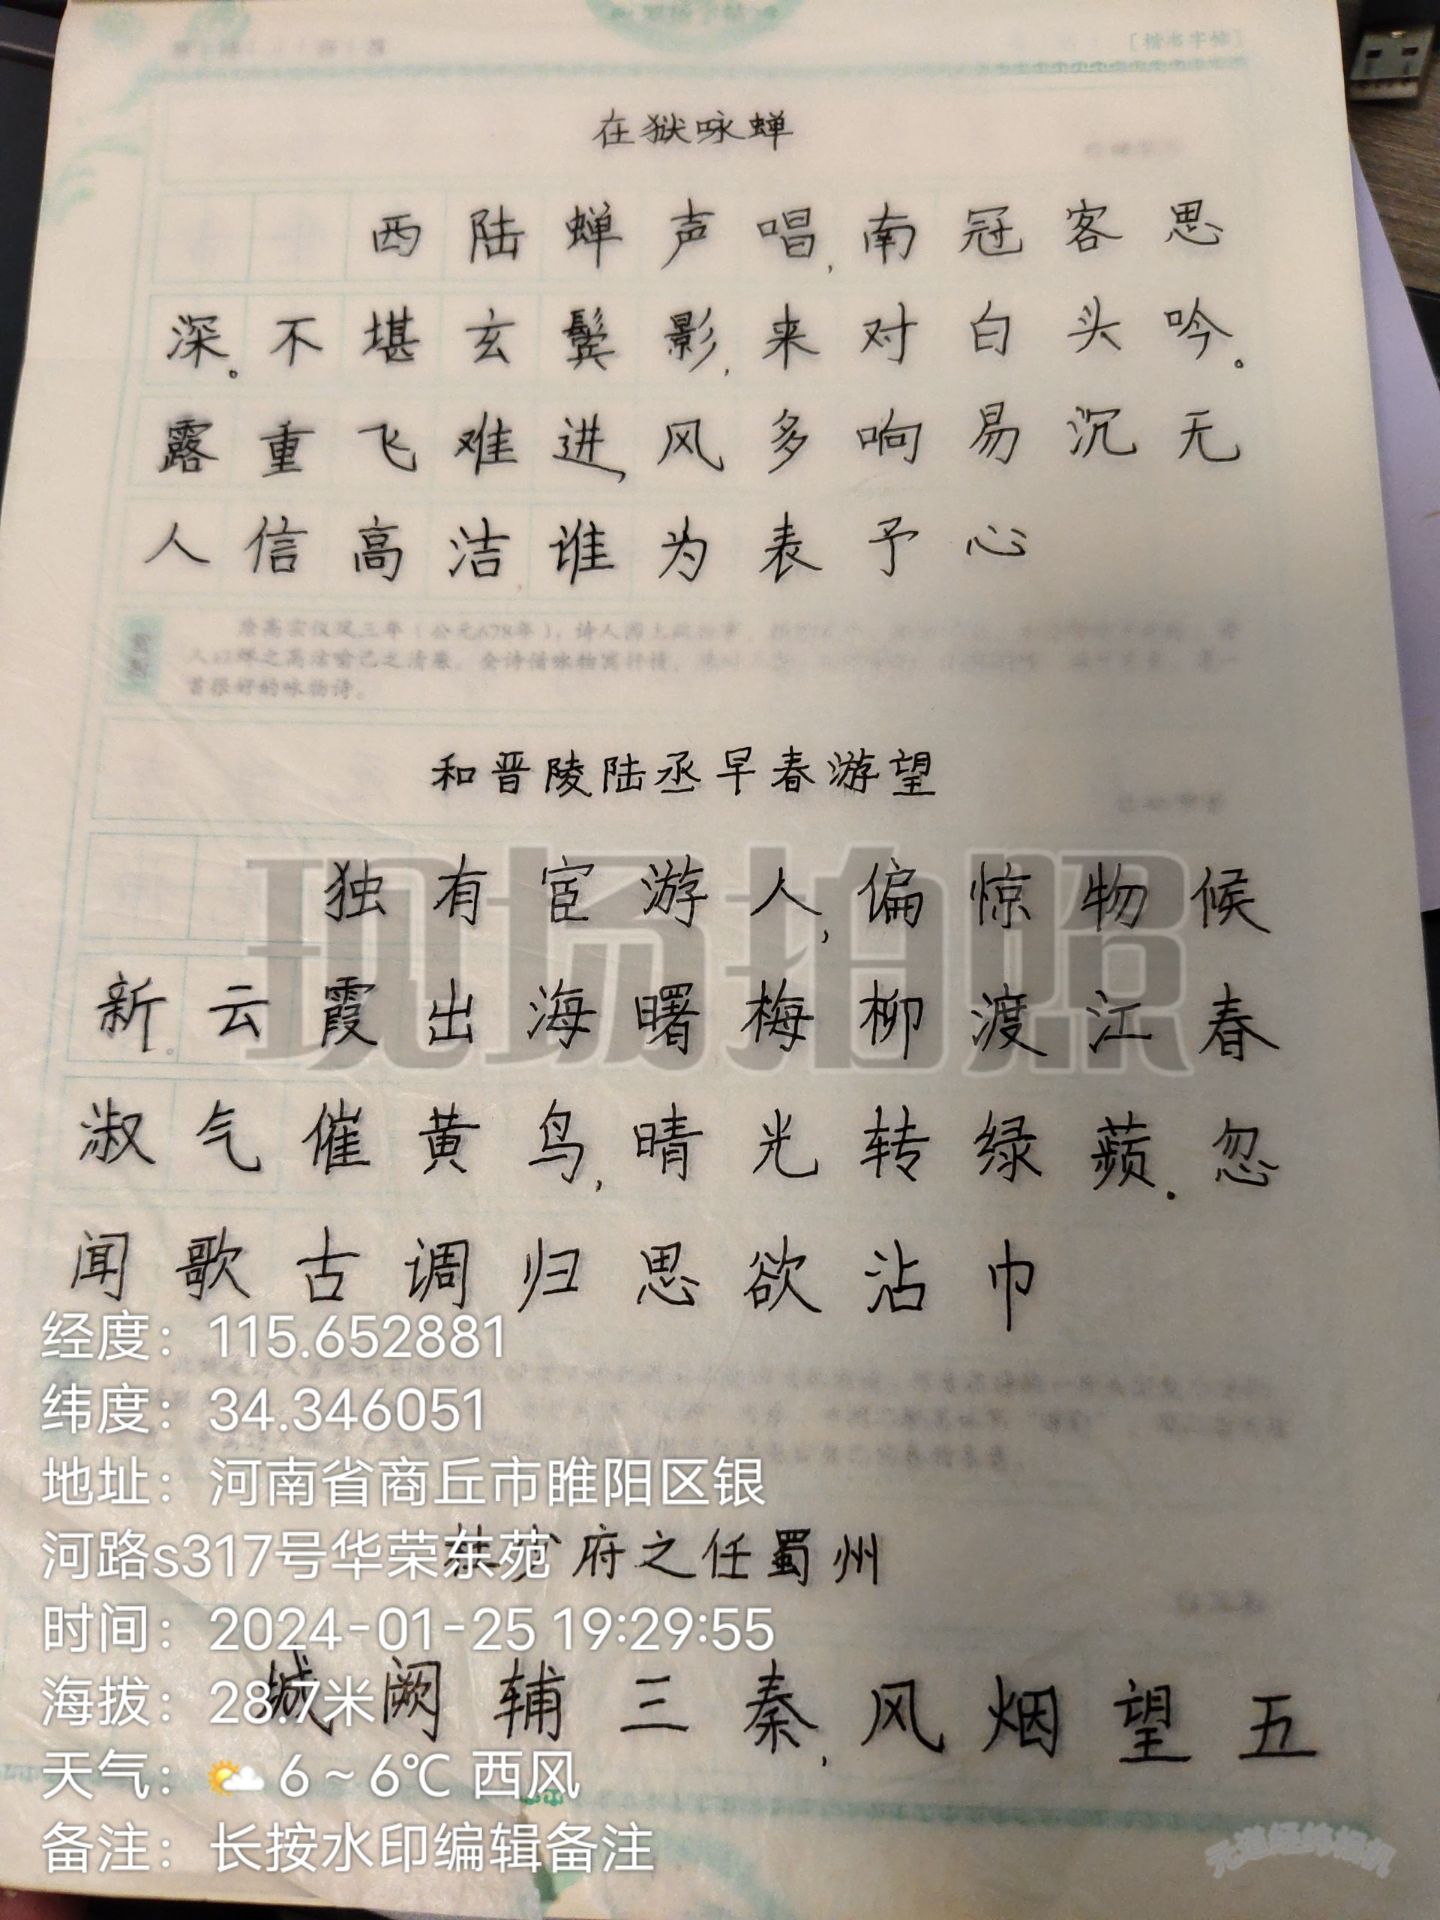 [楷书字帖]
在狱咏蝉
西陆蝉声唱,南冠客思
深。不堪玄鬓影,来对白头吟。
露重飞难进,风多响易沉无
人信高洁谁为表予心
和晋陵陆丞早春游望
现场拍照
独有宦游人,偏惊物候
新。云霞出海曙梅柳渡江春
淑气催黄鸟,晴光转绿蘋。忽
闻歌古调归思欲沾巾
经度：115.652881
纬度：34.346051
地址：河南省商丘市睢阳区银
河路s317号华荣东苑
府之任蜀州
时间：2024-01-25 19:29:55
城阙辅三秦,风烟望五
海拔：28.7米
天气：6～6℃ 西风
备注：长按水印编辑备注
元道经纬相机